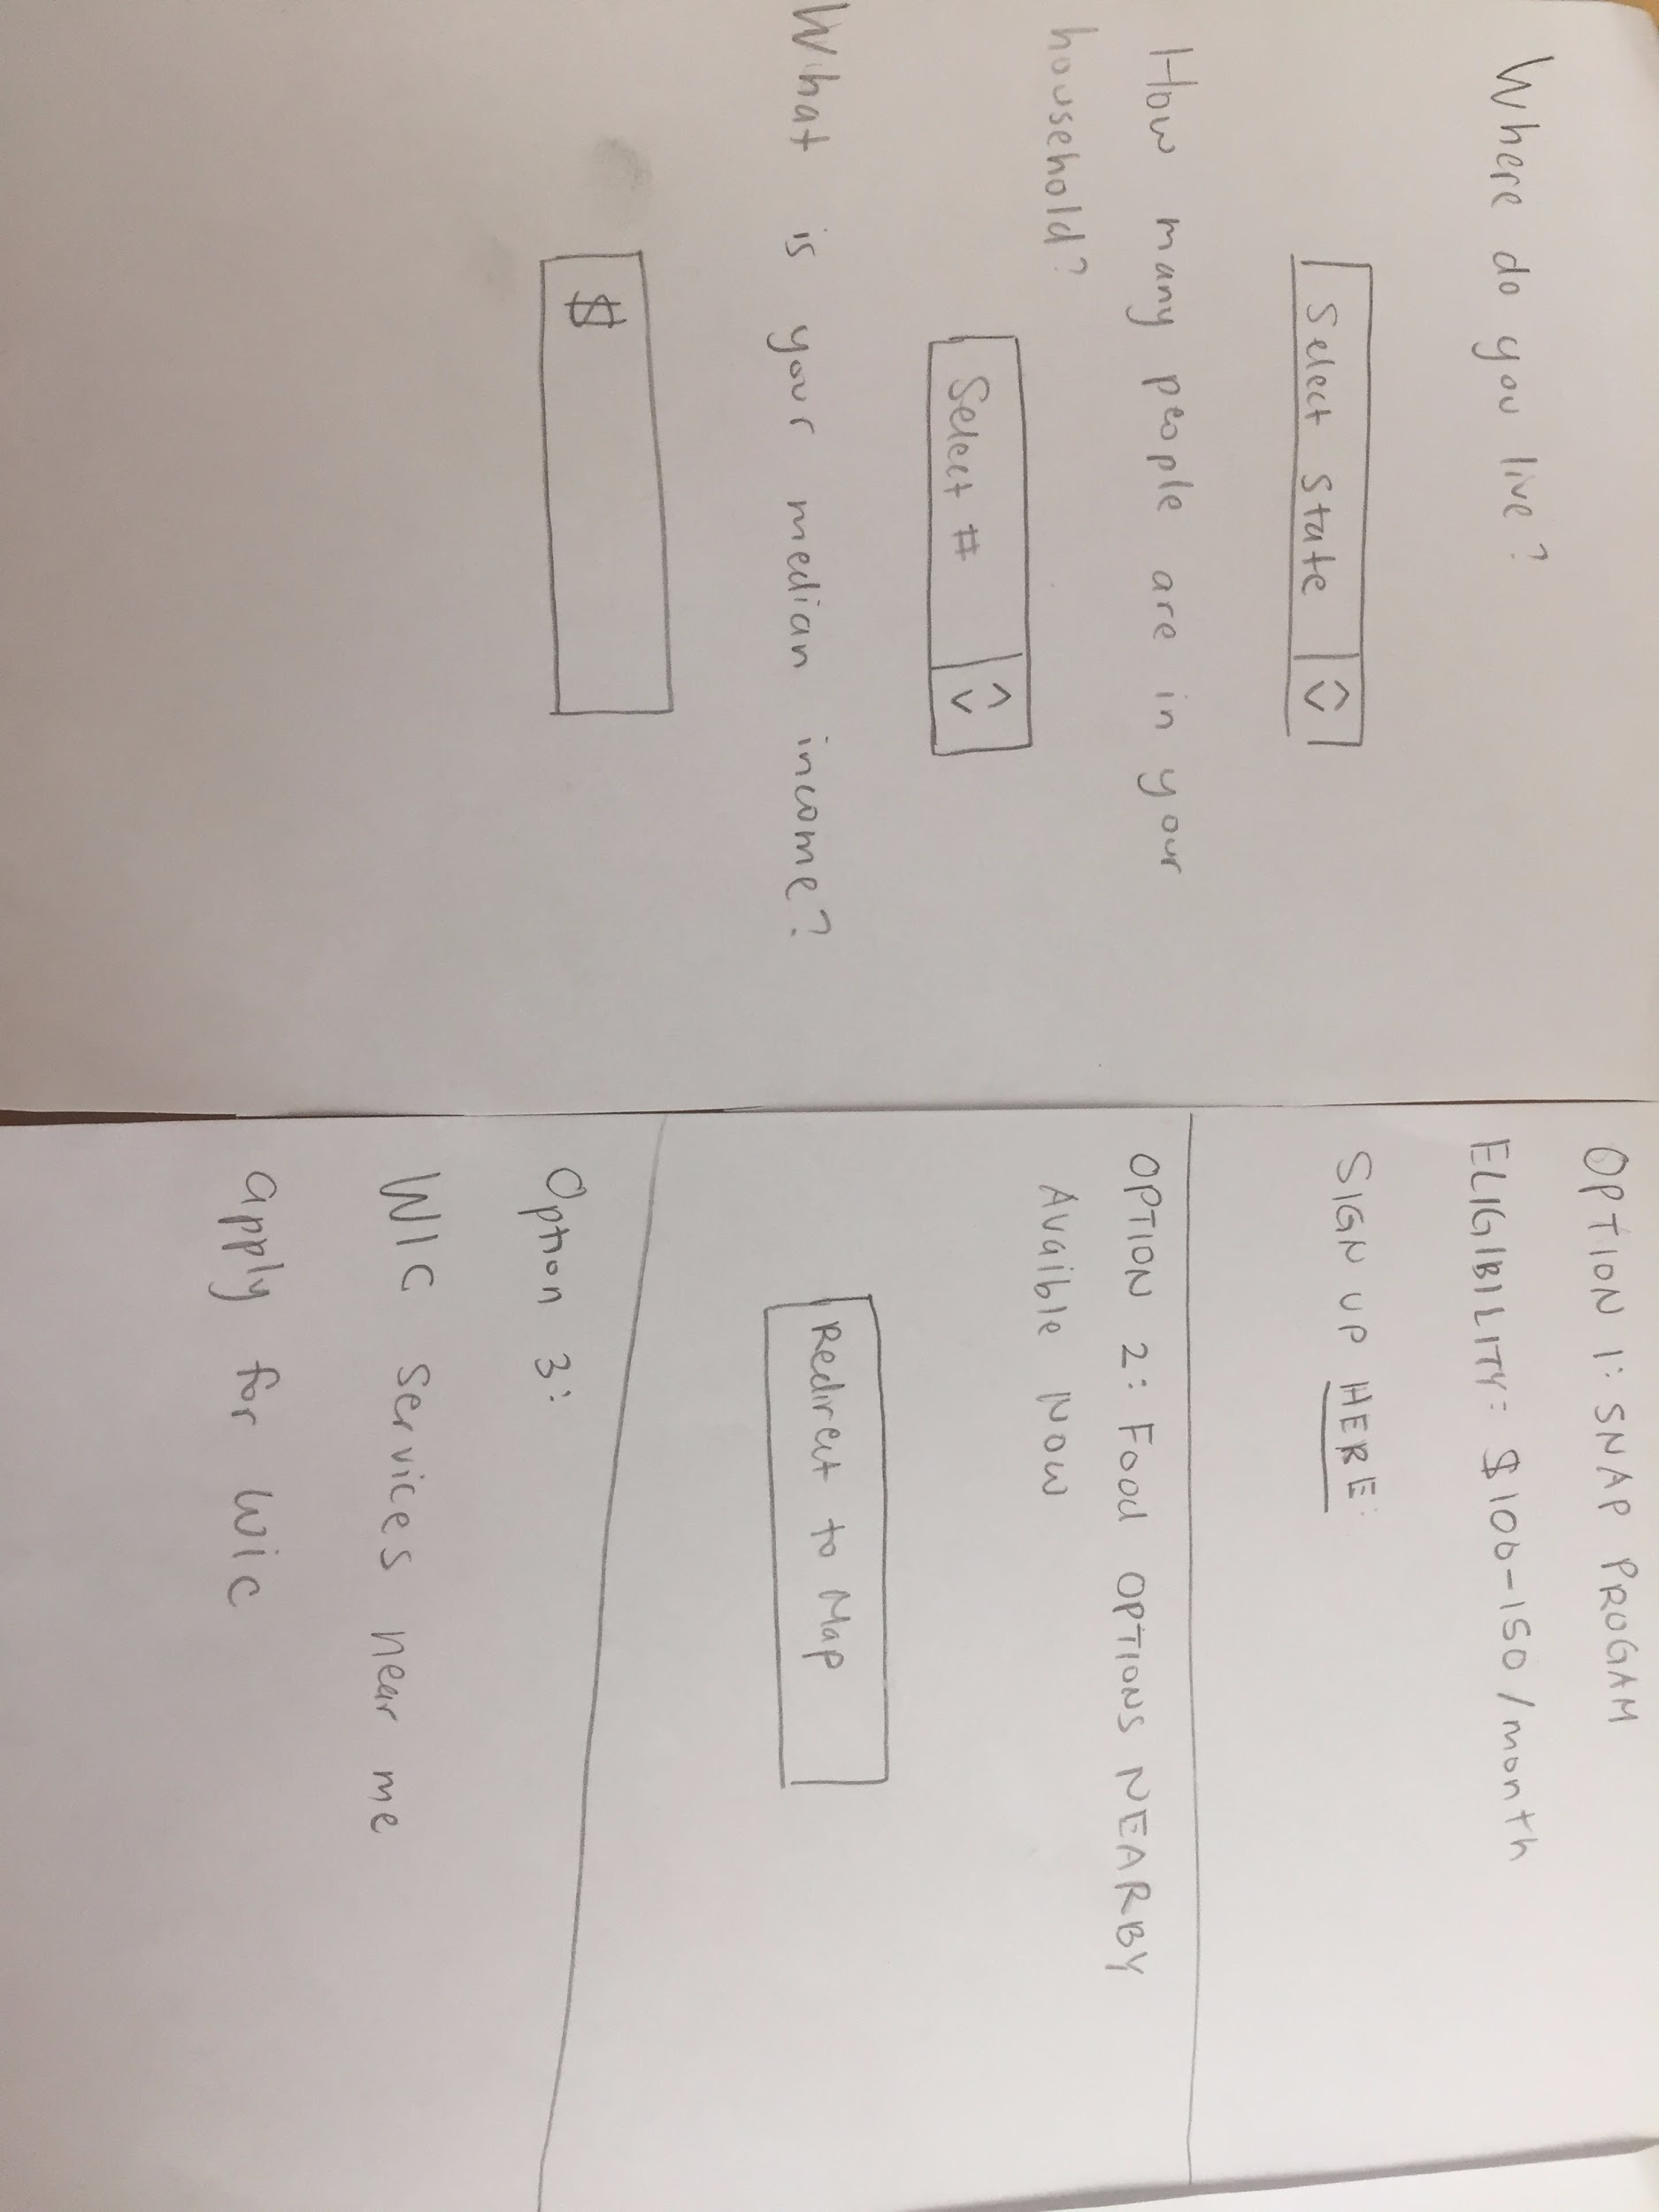 Where do you live?
Select State
How many people are in your
household?
Select #
What is your median income?
$
OPTION 1: SNAP PROGAM
ELIGIBILITY: $100-150/month
SIGN UP HERE:
OPTION 2: Food OPTIONS NEARBY
Avaible Now
Redirect to Map
Option 3:
WIC services near me
apply for WIC